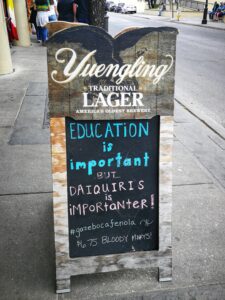 Yuengling
TRADITIONAL
LAGER
AMERICA'S OLDEST BREWERY
EDUCATION
is
important
BUT
DAIQUIRIS
is
iMPORTANTER!
#gazebocafenola
75 BLOODY MARYS!